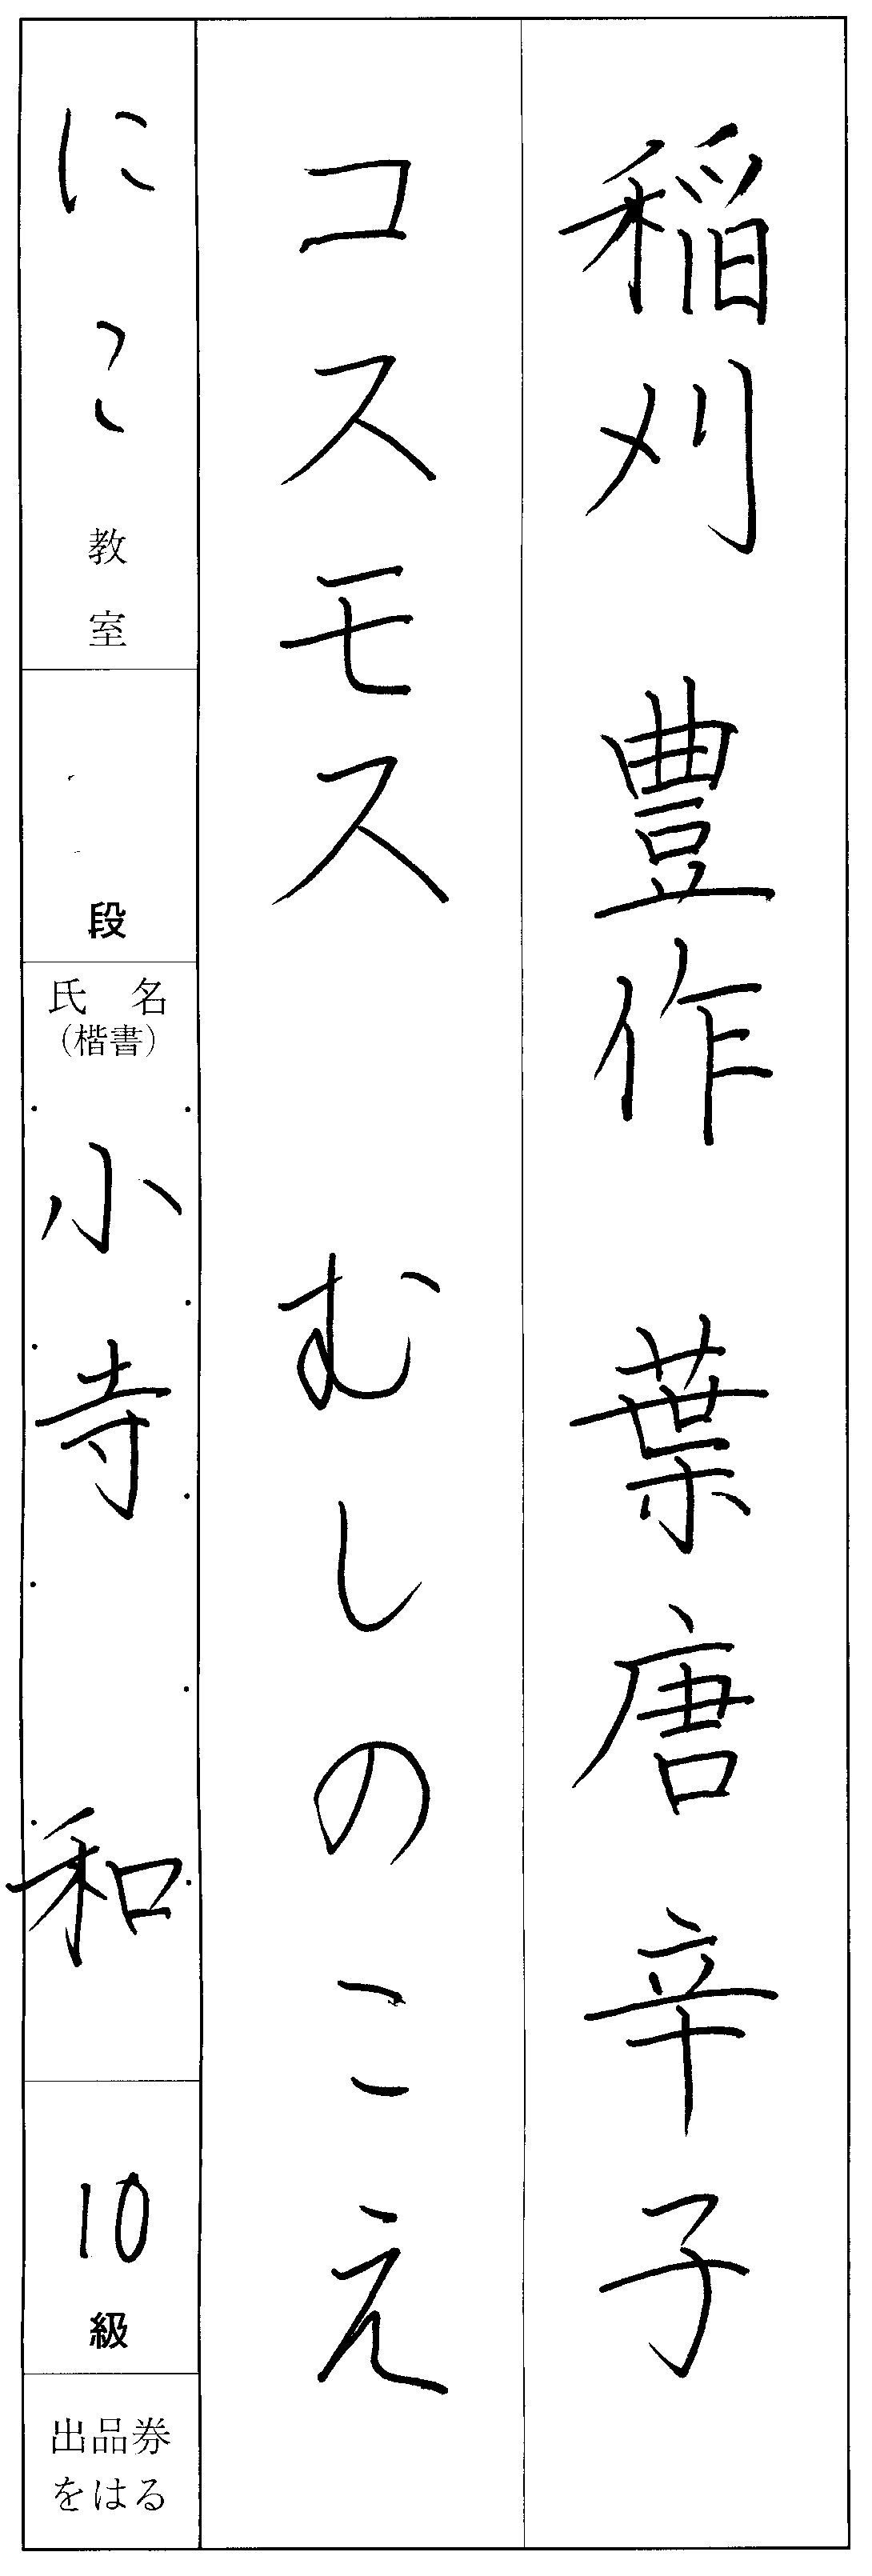 稲刈 豊作 葉唐辛子
コスモス むしのこえ
にこ教室
段
氏名
(楷書)
小寺 和
10級
出品券
をはる